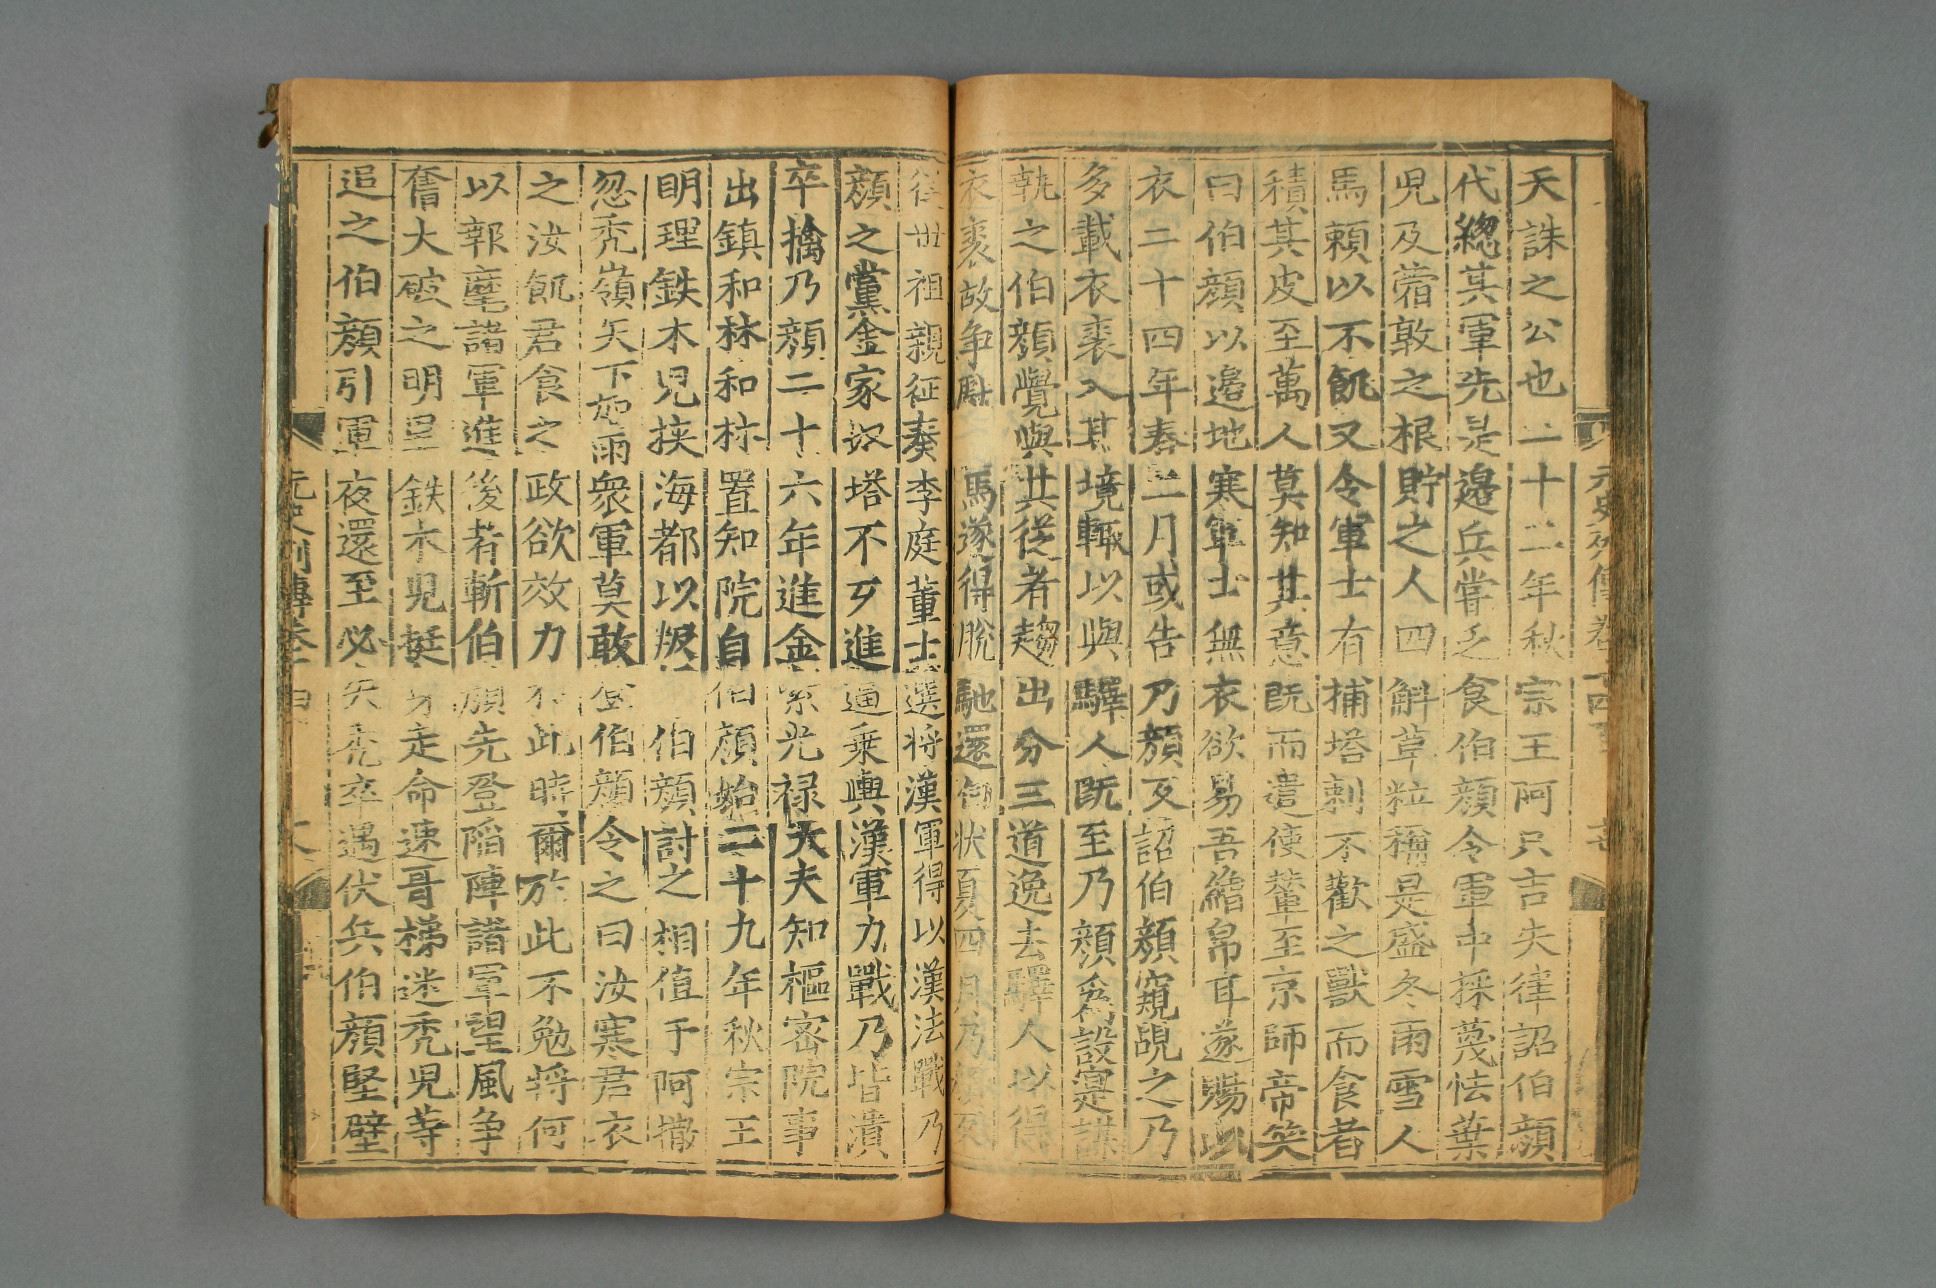 元史列傳卷十四
天誅之公也二十二年秋宗王阿只吉失律詔伯顏
代緫其軍先是邉兵嘗乏食伯顏令軍中採蔑怯葉
児及蓿敦之根貯之人四斛草粒稱是盛冬雨雪人
馬頼以不飢又令軍士有捕塔剌不歡之獸而食者
積其皮至萬人莫知其意既而遣使輦至京師帝笑
曰伯顏以邉地寒軍士無衣欲易吾繒帛耳遂賜以
衣二十四年春二月或告乃顏反詔伯顏窺覘之乃
多載衣裘入其境輙以與驛人既至乃顏為設宴謀
執之伯顏覺與其從者趨出分三道逸去驛人以得
衣裘故争獻馬遂得脫馳還白狀夏四月乃顏反
從世祖親征奏李庭董士選将漢軍得以漢法戰乃
顏之黨金家奴塔不歹進逼乗輿漢軍力戰乃皆潰
卒擒乃顏二十六年進金紫光禄大夫知樞密院事
出鎮和林和林置知院自伯顏始二十九年秋宗王
明理鉄木児挟海都以叛伯顏討之相值于阿撒
忽禿嶺矢下如雨衆軍莫敢登伯顏令之曰汝寒君衣
之汝飢君食之政欲效力於此時爾於此不勉将何
以報麾諸軍進後者斬伯顏先登陷陣諸軍望風争
奮大破之明里鉄木児挺身走命速哥梯迷禿児等
追之伯顏引軍夜還至必失禿卒遇伏兵伯顏堅壁
元史列傳卷十四